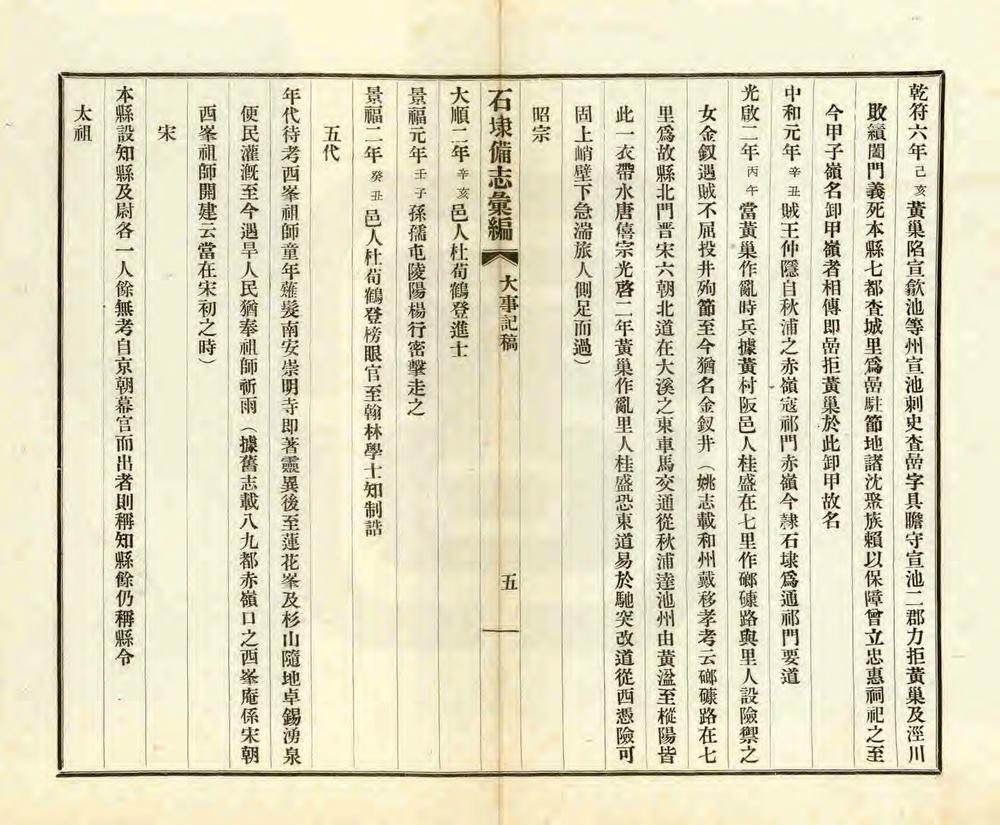 乾符六年己亥黃巢陷宣歙池等州宣池刺史查嵒字具瞻守宣池二郡力拒黃巢及涇川
敗績闔門義死本縣七都查城里爲嵒駐節地諸沈聚族賴以保障曾立忠惠祠祀之至
今甲子嶺名卸甲嶺者相傳即嵒拒黃巢於此卸甲故名
中和元年辛丑賊王仲隱自秋浦之赤嶺寇祁門赤嶺今隸石埭爲通祁門要道
光啟二年丙午當黃巢作亂時兵據黃村阪邑人桂盛在七里作𥕢磏路與里人設險禦之
女金釵遇賊不屈投井殉節至今猶名金釵井（姚志載和州戴移孝考云𥕢磏路在七
里爲故縣北門晋宋六朝北道在大溪之東車馬交通從秋浦達池州由黃湓至樅陽皆
此一衣帶水唐僖宗光啓二年黃巢作亂里人桂盛恐東道易於馳突改道從西憑險可
固上峭壁下急湍旅人側足而過）
昭宗
大順二年辛亥邑人杜荀鶴登進士
景福元年壬子孫儒屯陵陽楊行密擊走之
景福二年癸丑邑人杜荀鶴登榜眼官至翰林學士知制誥
五代
年代待考西峯祖師童年薙髮南安崇明寺即著靈異後至蓮花峯及杉山隨地卓錫湧泉
便民灌漑至今遇旱人民猶奉祖師祈雨（據舊志載八九都赤嶺口之西峯庵係宋朝
西峯祖師開建云當在宋初之時）
宋
本縣設知縣及尉各一人餘無考自京朝幕官而出者則稱知縣餘仍稱縣令
太祖
石埭備志彙編
大事記稿
五